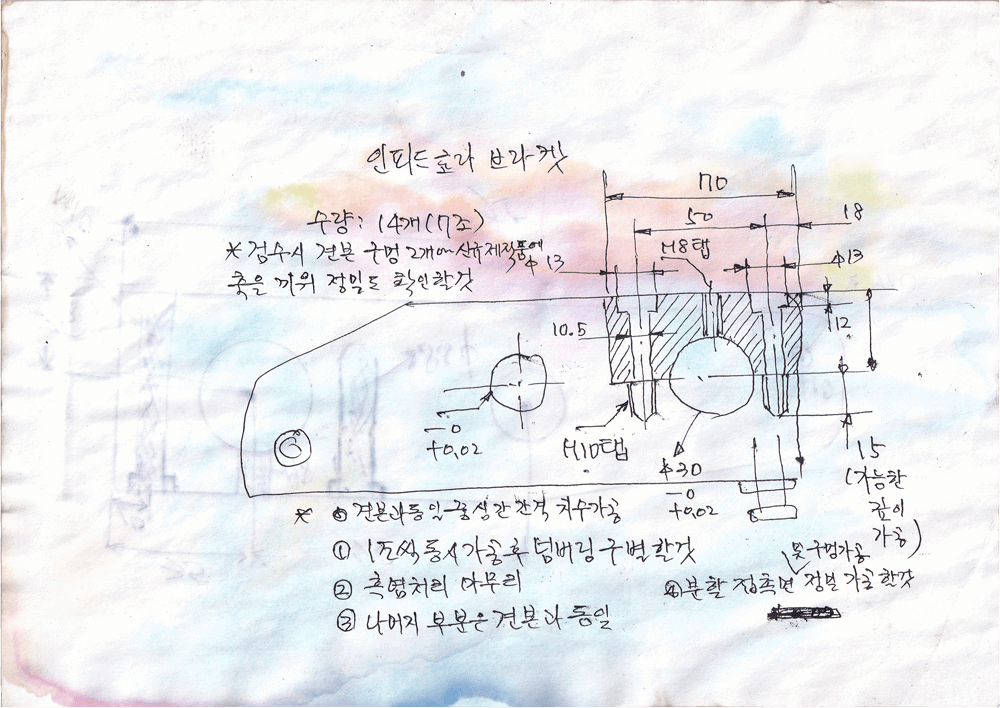 인피드로라 브라켓
70
수량: 14개(7조)
50
18
※ 검수시 견본 구멍 2개와 신규제작품에
M8탭
φ13
φ13
축을 끼워 정밀도 확인할것
10.5
12
-0
+0.02
M10탭
φ30
-0
+0.02
15
(가능한
깊이
가공)
※ 견본과 동일 중심간 간격 치수가공
① 1조씩 동시가공 후 넘버링 구별할것
못구멍가공
② 흑염처리 마무리
④ 분할 접촉면 정밀 가공할것
③ 나머지 부분은 견본과 동일